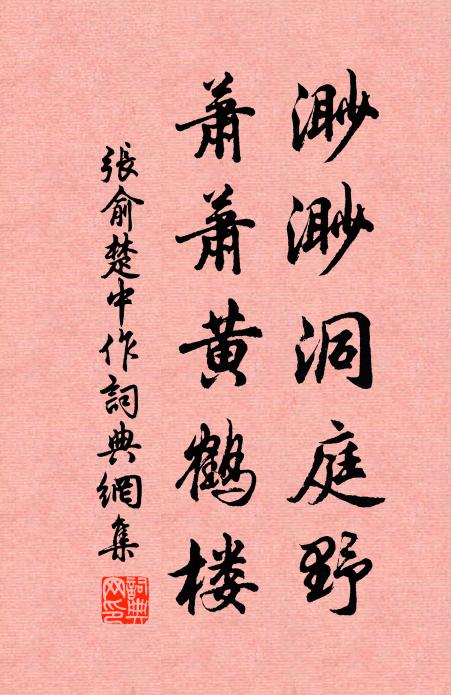 渺渺洞庭野
萧萧黄鹤楼
張俞楚中作詞典網集
詞典網印